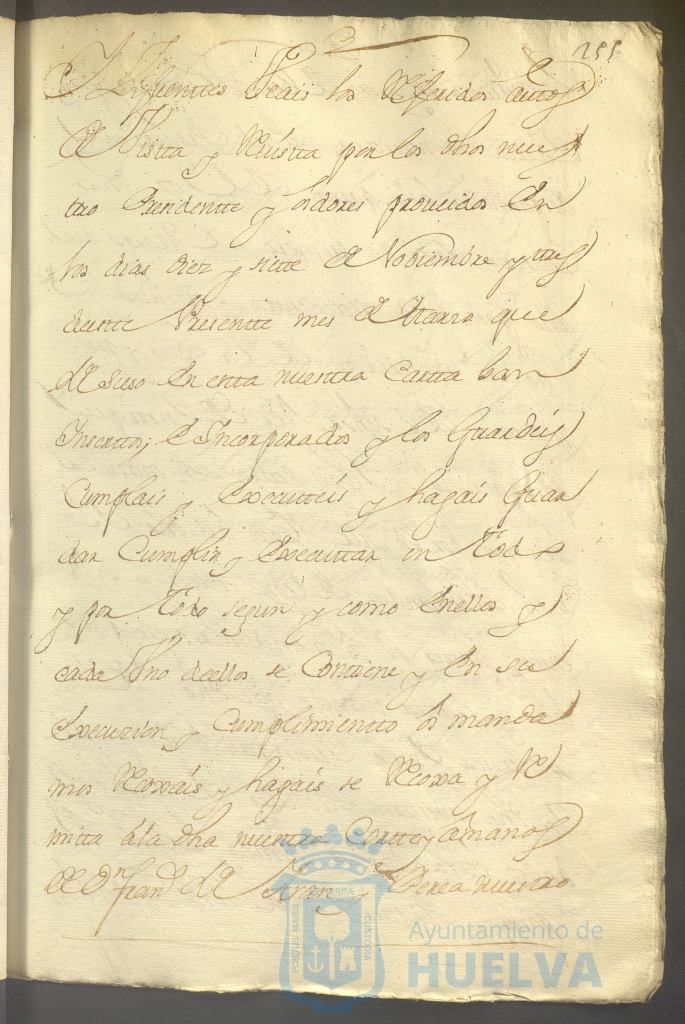 255
siguientes Veais los Referidos autos
de Visita y Reuista por los dhos nues
tro Presidentte y oidores proueidos En
los dias diez y siette de Nobiembre y tres
deeste Presentte mes de Marzo que
de suso En esta nuestra Cartta ban
Insertos, e Incorporados y los Guardeis
Cumplais y Executteis y hagais Guar
dar Cumplir y Executtar en todo
y por todo segun y como Enellos y
cada Vno deellos se Conttiene y En su
Execuzion y Cumplimientto os manda
mos Recoxais y hagais se Recoxa y Re
mitta a la dha nuestra Cortte y amanos
de Dn Franco de Aran y Perea nuestro
PORTUS MARIS ET TERRAE CUSTODIA
Ayuntamiento de
HUELVA